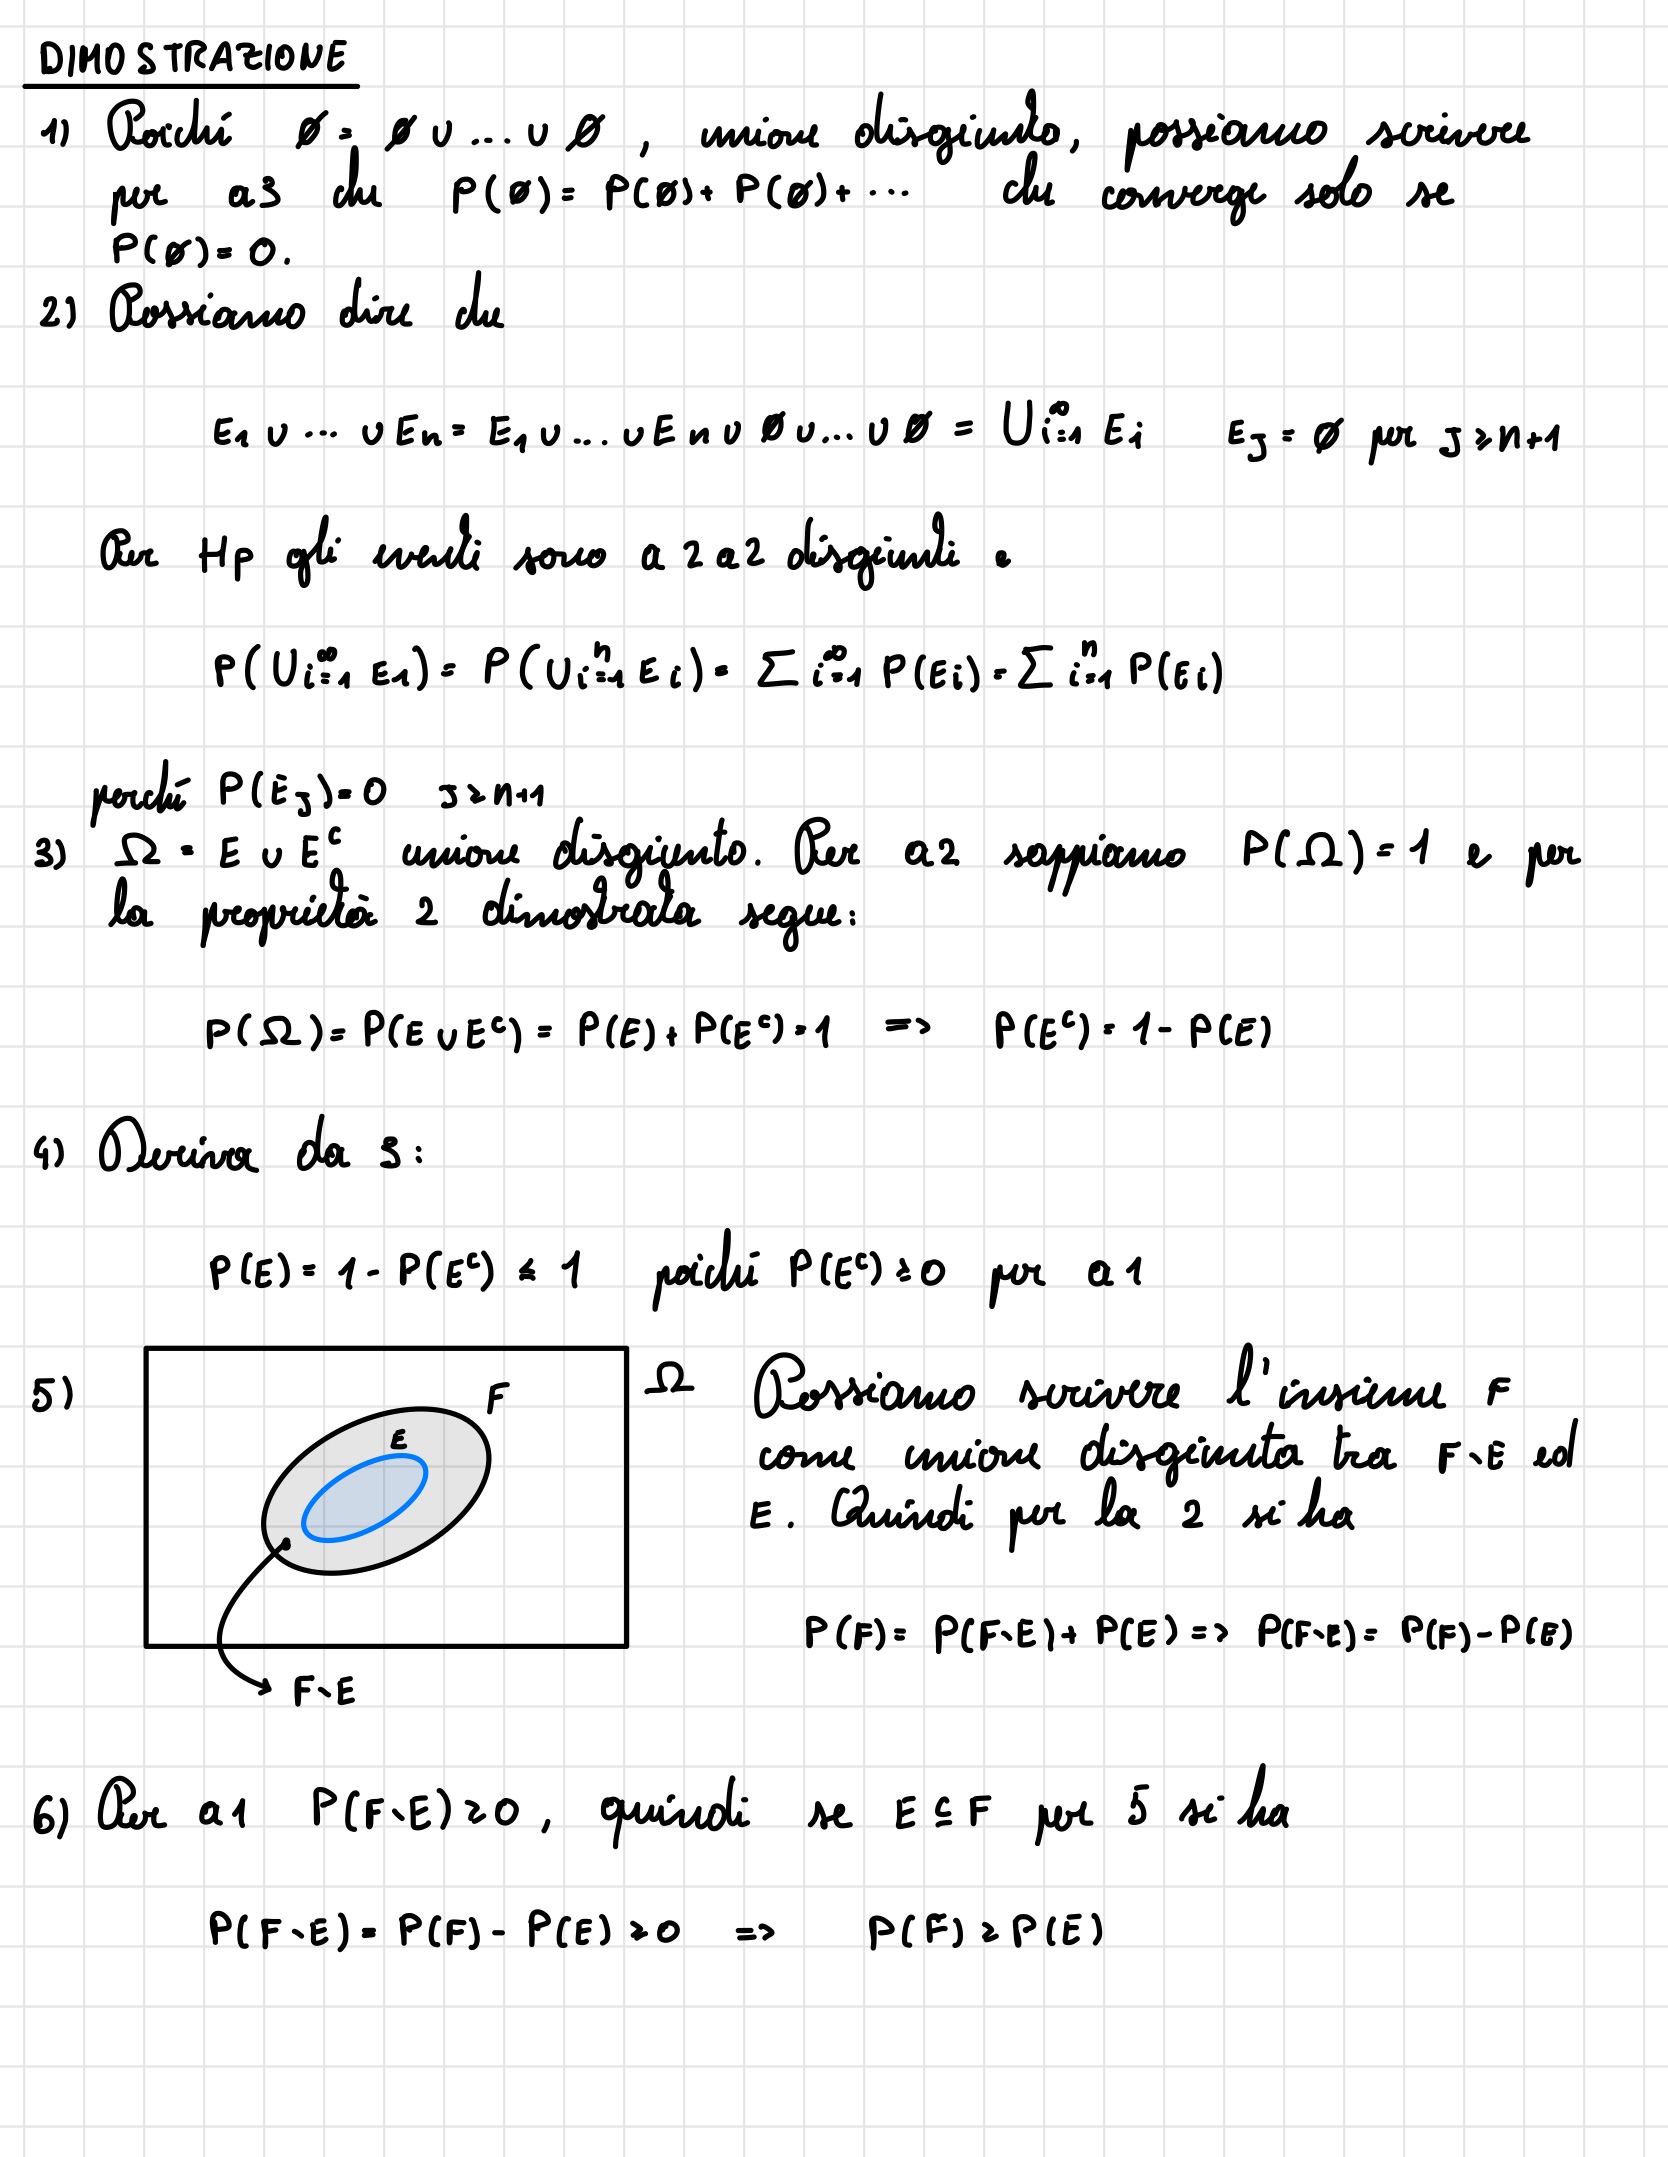 DIMOSTRAZIONE
1) Poiché ∅ = ∅ ∪ ... ∪ ∅ , unione disgiunta, possiamo scrivere
per a3 che P(∅) = P(∅) + P(∅) + ... che converge solo se
P(∅) = 0.
2) Possiamo dire che
E₁ ∪ ... ∪ Eₙ = E₁ ∪ ... ∪ Eₙ ∪ ∅ ∪ ... ∪ ∅ = ⋃ᵢ₌₁^∞ Eᵢ   Eⱼ = ∅ per j ≥ n+1
Per Hp gli eventi sono a 2 a 2 disgiunti e
P(⋃ᵢ₌₁^∞ E₁) = P(⋃ᵢ₌₁ⁿ Eᵢ) = ∑ᵢ₌₁^∞ P(Eᵢ) = ∑ᵢ₌₁ⁿ P(Eᵢ)
perché P(Eⱼ) = 0 j ≥ n+1
3) Ω = E ∪ Eᶜ unione disgiunta. Per a2 sappiamo P(Ω) = 1 e per
la proprietà 2 dimostrata segue:
P(Ω) = P(E ∪ Eᶜ) = P(E) + P(Eᶜ) = 1 => P(Eᶜ) = 1 - P(E)
4) Deriva da 3:
P(E) = 1 - P(Eᶜ) ≤ 1 poiché P(Eᶜ) ≥ 0 per a1
5)
F
E
Ω
F∖E
Possiamo scrivere l'insieme F
come unione disgiunta tra F∖E ed
E. Quindi per la 2 si ha
P(F) = P(F∖E) + P(E) => P(F∖E) = P(F) - P(E)
6) Per a1 P(F∖E) ≥ 0, quindi se E ⊆ F per 5 si ha
P(F∖E) = P(F) - P(E) ≥ 0 => P(F) ≥ P(E)